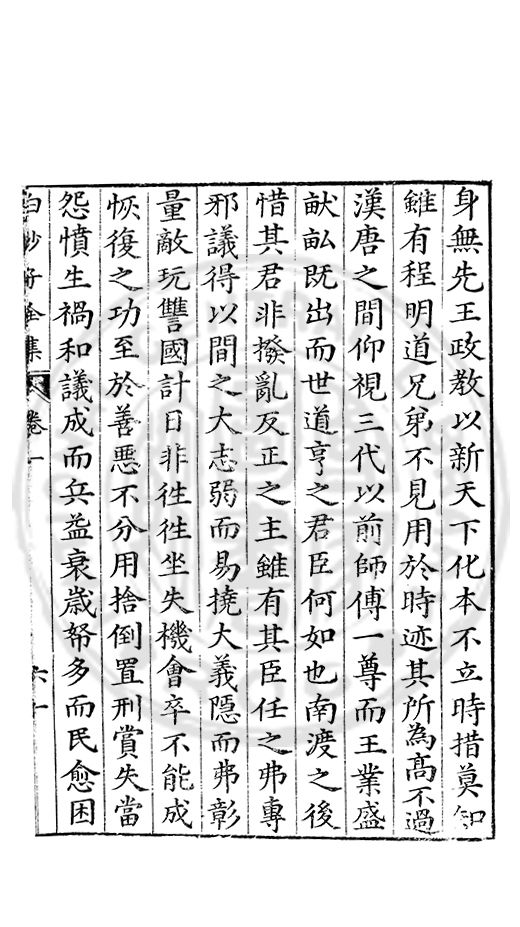 身無先王政教以新天下化本不立時措莫知
雖有程明道兄弟不見用於時迹其所為高不過
漢唐之間仰視三代以前師傅一尊而王業盛
畎畝既出而世道亨之君臣何如也南渡之後
惜其君非撥亂反正之主雖有其臣任之弗專
邪議得以間之大志弱而易撓大義隱而弗彰
量敵玩讐國計日非徃徃坐失機會卒不能成
恢復之功至於善惡不分用捨倒置刑賞失當
怨憤生禍和議成而兵益衰歲幣多而民愈困
白沙子全集 卷一 六十